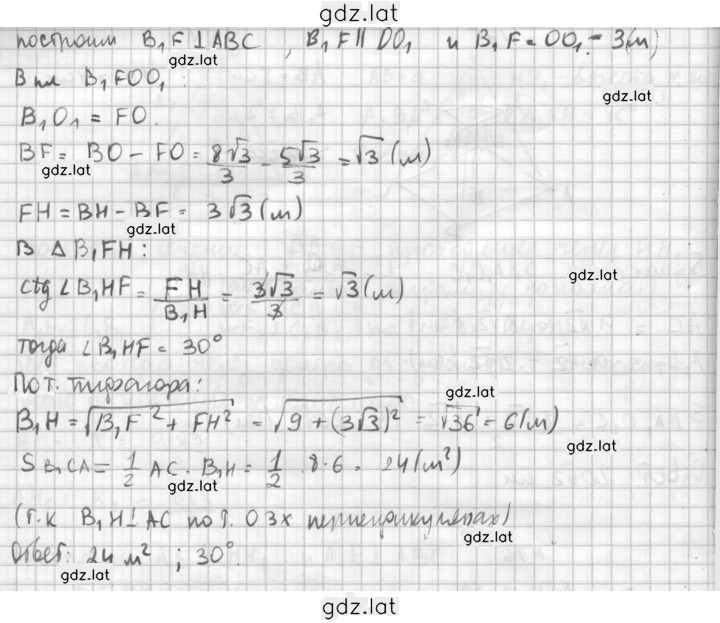 gdz.lat
построим B₁F ⊥ ABC , B₁F || DO₁ и B₁F = OO₁ = 3(м)
gdz.lat
В пл B₁FOO₁ :
gdz.lat
B₁O₁ = FO.
BF = BO − FO = 8√3/3 − 5√3/3 = √3 (м)
gdz.lat
FH = BH − BF = 3√3 (м)
gdz.lat
В Δ B₁FH :
gdz.lat
ctg ∠B₁HF = FH/B₁H = 3√3/3 = √3 (м)
тогда ∠B₁HF = 30°
По т. Пифагора:
gdz.lat
B₁H = √(B₁F² + FH²) = √(9 + (3√3)²) = √36 = 6(м)
gdz.lat
S B₁CA = 1/2 AC · B₁H = 1/2 · 8 · 6 = 24(м²)
gdz.lat
(т.к B₁H ⊥ AC по т. О 3х перпендикулярах)
gdz.lat
Ответ: 24 м² ; 30°.
gdz.lat
gdz.lat